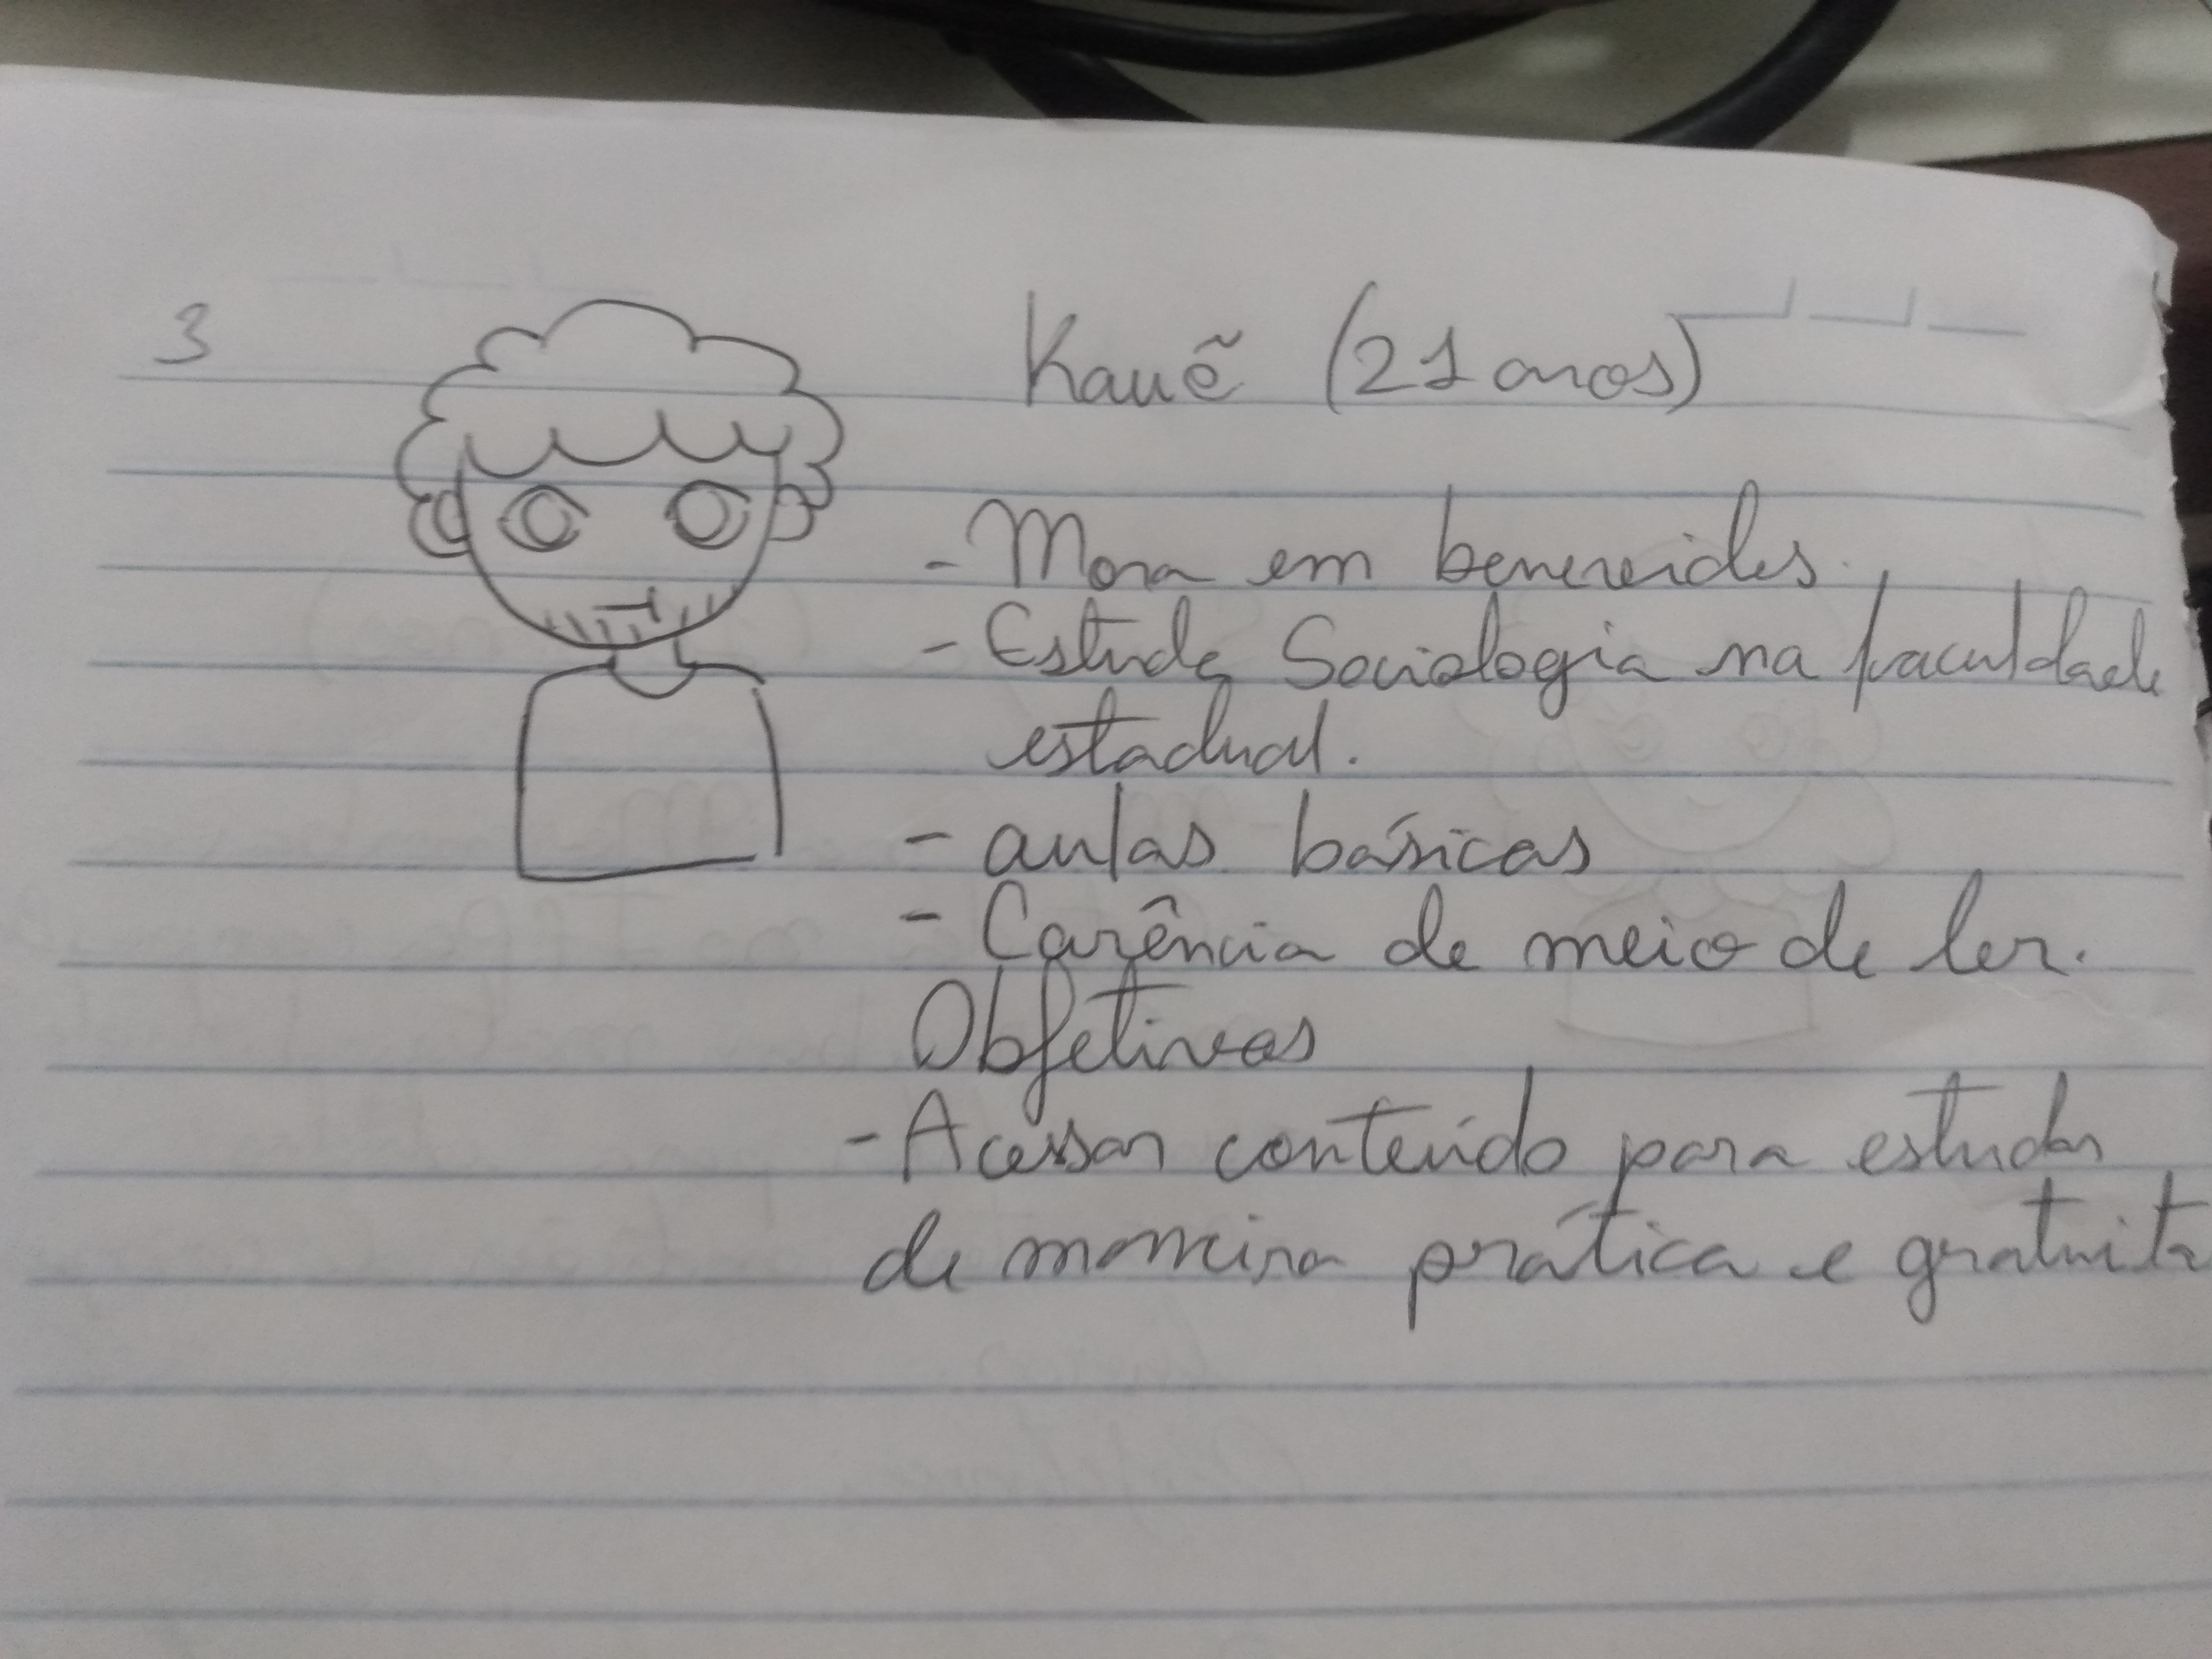 3
Kauẽ (21 anos)
- Mora em benereides.
- Estuda Sociologia na faculdade
estadual.
- aulas básicas
- Carência de meio de ler.
Objetivos
- Acessar conteúdo para estudar
de maneira prática e gratuita